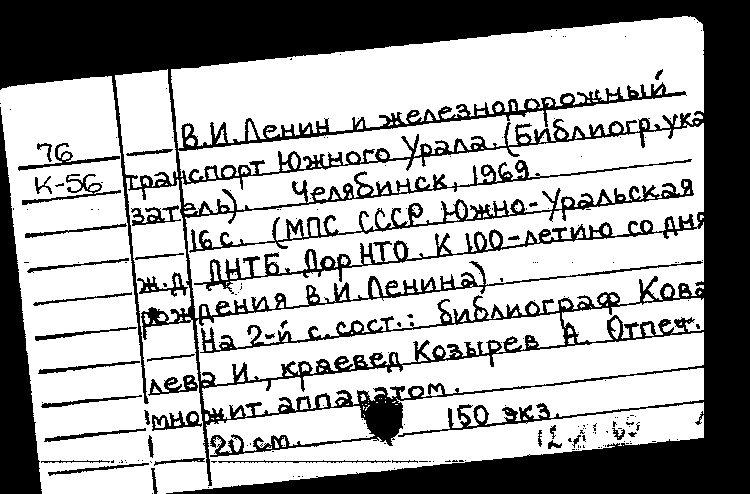 В.И.Ленин и железнодорожный
76
транспорт Южного Урала. (Библиогр.ука
К-56
затель). Челябинск, 1969.
16 с. (МПС СССР. Южно-Уральская
ж.д. ДНТБ. Дор НТО. К 100-летию со дня
рождения В.И.Ленина).
На 2-й с. сост.: библиограф Кова
лева И., краевед Козырев А. Отпеч.
множит. аппаратом.
20 см. 150 экз.